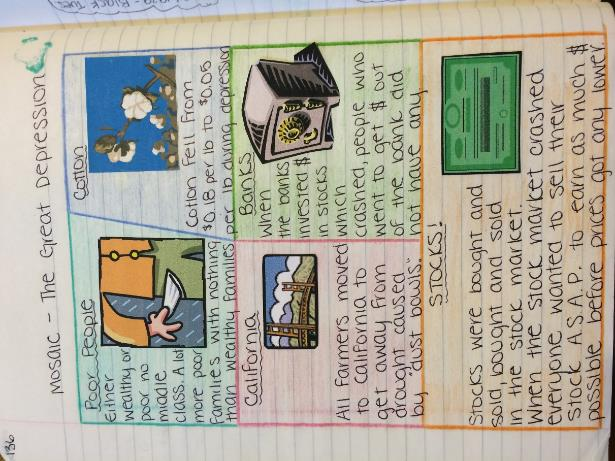 136
Mosaic - The Great Depression
Poor People
Either
wealthy or
poor no
middle
class. A lot
more poor
families with nothing
than wealthy families
Cotton
Cotton fell from
$0.18 per lb to $0.05
per lb during depression
California
All farmers moved
to California to
get away from
drought caused
by "dust bowls."
Banks
When
the banks
invested $
in stocks
which
crashed, people who
went to get $ out
of the bank did
not have any
STOCKS!
Stocks were bought and
sold, bought and sold
in the stock market.
When the stock market crashed
everyone wanted to sell their
stock A.S.A.P. to earn as much $
possible before prices got any lower